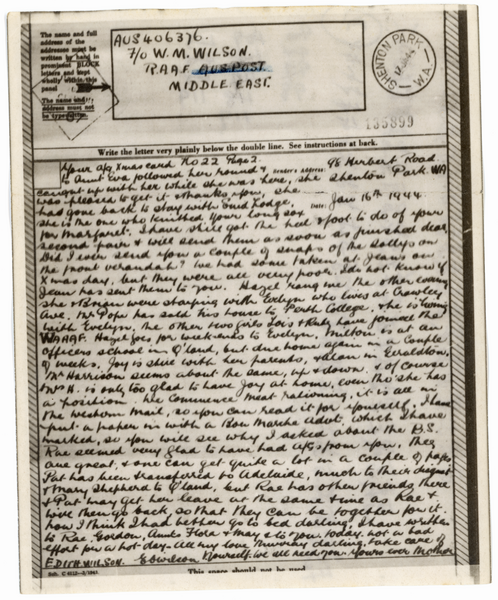 The name and full
address of the
addressee must be
written by hand in
prominent BLOCK
letters and kept
wholly within this
panel
The name and
address must not
be typewritten.
AUS 406376.
F/O W. M. WILSON.
R.A.A.F. AUS POST.
MIDDLE EAST.
SHENTON PARK
W.A.
135899
Write the letter very plainly below the double line. See instructions at back.
Your a/g Xmas card No 22 Page 2.
Sender's address: 98 Herbert Road
Shenton Park. WA
Date: Jan 16th 1944
to Aunt Eva followed her round &
caught up with her while she was here, she
was pleased to get it & thanks you, she
had gone back to stay with
she is the one who knitted your long sox
for Margaret. I have still got the heel & foot to do of your
second pair & will send them as soon as finished dear,
Did I ever send you a couple of snaps of the Sollys on
the front verandah? We had some taken at Jean's on
Xmas day, but they were all very poor. I do not know if
Jean has sent them to you. Hazel rang me the other evening
she & Brian were staying with Evelyn who lives at Crawley
Ave. Mr Pope has sold his house to Perth College. & he is living
with Evelyn. the other two girls Lois & have joined the
WAAAF. Hazel goes for week-ends to Evelyn. Milton is at an
officers school in Q'land, but due home again in a couple
of weeks. Joy is still with her parents, & Alan in Geraldton,
Mr Harrison seems about the same, up & down. & of course
Mrs H. is only too glad to have Joy at home, even tho' she has
a position. We commence Meat rationing, it is all in
the Western Mail, so you can read it for yourself. I have
put a paper in with a Bon Marche advt. which I have
marked, so you will see why I asked about the B.S.
Rae seemed very glad to have had a/gs from you. They
are great, & one can get quite a lot in a couple of pages
Pat has been transferred to Adelaide, much to their disgust
& Mary Shepherd to Q'land, but Rae has other friends there
& Pat may get her leave at the same time as Rae &
will then go back, so that they can be together for it.
now I think I had better go to bed darling. I have written
to Rae, Gordon, Auntie Flora & May & to you today, not a bad
effort for a hot day. All my love Murray darling, take care of
yourself, we all need you. Yours ever Mother
EDITH. WILSON. E. Wilson
This space should not be used.